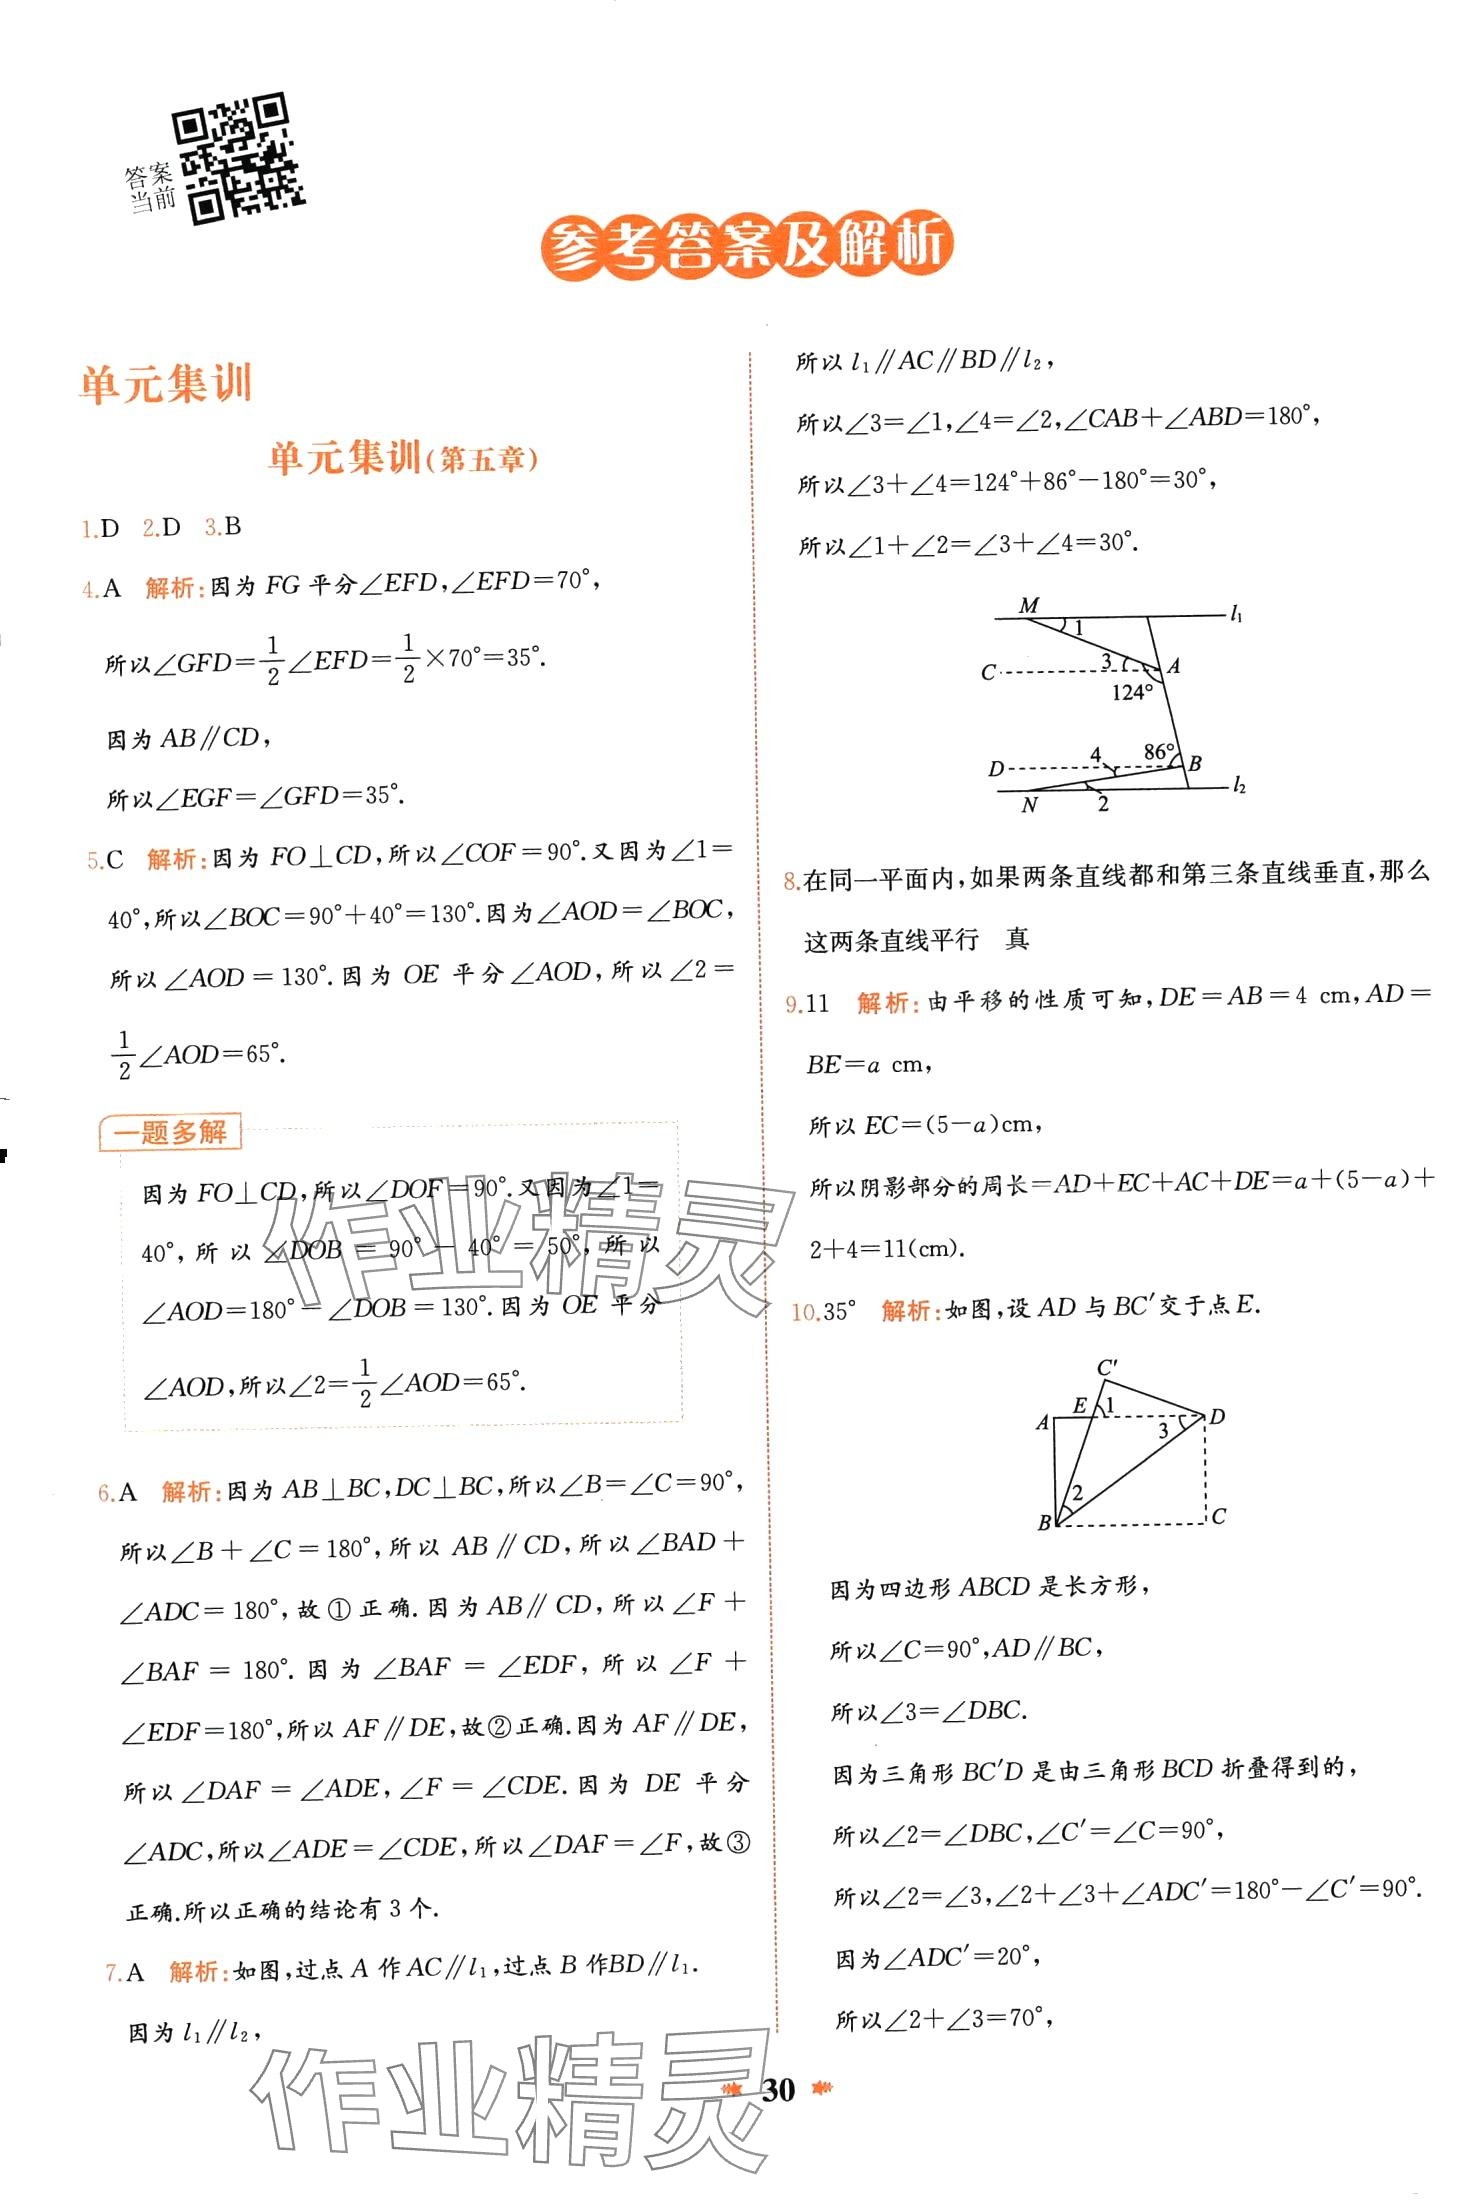 答案
当前
参考答案及解析
单元集训
单元集训(第五章)
1.D 2.D 3.B
4.A 解析:因为 FG 平分∠EFD,∠EFD=70°,
所以∠GFD=1/2∠EFD=1/2×70°=35°.
因为 AB∥CD,
所以∠EGF=∠GFD=35°.
5.C 解析:因为 FO⊥CD,所以∠COF=90°.又因为∠1=
40°,所以∠BOC=90°+40°=130°.因为∠AOD=∠BOC,
所以∠AOD=130°.因为 OE 平分∠AOD,所以∠2=
1/2∠AOD=65°.
一题多解
因为 FO⊥CD,所以∠DOF=90°.又因为∠1=
40°,所以∠DOB=90°-40°=50°,所以
∠AOD=180°-∠DOB=130°.因为 OE 平分
∠AOD,所以∠2=1/2∠AOD=65°.
6.A 解析:因为 AB⊥BC,DC⊥BC,所以∠B=∠C=90°,
所以∠B+∠C=180°,所以 AB∥CD,所以∠BAD+
∠ADC=180°,故①正确.因为 AB∥CD,所以∠F+
∠BAF=180°.因为∠BAF=∠EDF,所以∠F+
∠EDF=180°,所以 AF∥DE,故②正确.因为 AF∥DE,
所以∠DAF=∠ADE,∠F=∠CDE.因为 DE 平分
∠ADC,所以∠ADE=∠CDE,所以∠DAF=∠F,故③
正确.所以正确的结论有 3 个.
7.A 解析:如图,过点 A 作 AC∥l₁,过点 B 作BD∥l₁.
因为 l₁∥l₂,
所以 l₁∥AC∥BD∥l₂,
所以∠3=∠1,∠4=∠2,∠CAB+∠ABD=180°,
所以∠3+∠4=124°+86°-180°=30°,
所以∠1+∠2=∠3+∠4=30°.
M 1 l₁
C 3 A
124°
D 4 86° B
N 2 l₂
8.在同一平面内,如果两条直线都和第三条直线垂直,那么
这两条直线平行 真
9.11 解析:由平移的性质可知,DE=AB=4 cm,AD=
BE=a cm,
所以 EC=(5-a)cm,
所以阴影部分的周长=AD+EC+AC+DE=a+(5-a)+
2+4=11(cm).
10.35° 解析:如图,设 AD 与 BC′交于点 E.
C′
A E 1 3 D
2
B C
因为四边形 ABCD 是长方形,
所以∠C=90°,AD∥BC,
所以∠3=∠DBC.
因为三角形 BC′D 是由三角形 BCD 折叠得到的,
所以∠2=∠DBC,∠C′=∠C=90°,
所以∠2=∠3,∠2+∠3+∠ADC′=180°-∠C′=90°.
因为∠ADC′=20°,
所以∠2+∠3=70°,
作业精灵
作业精灵
30